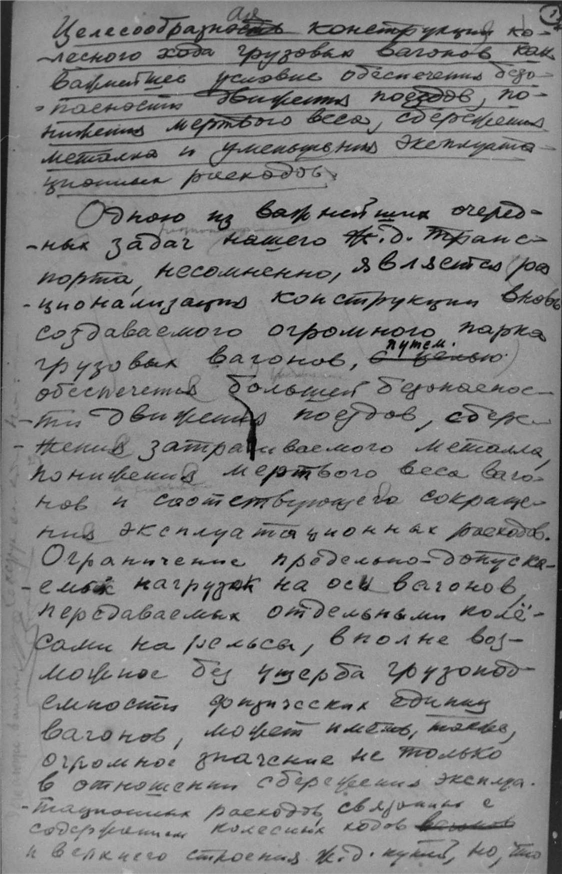 1
Целесообразная конструкция ко-
-лесного хода грузовых вагонов как
важнейшее условие обеспечения безо-
-пасности движения поездов, по-
нижения мертвого веса, сбережения
металла и уменьшения эксплуата-
ционных расходов.
Одною из важнейших очеред-
-ных задач нашего ж.д. транс-
порта, несомненно, является ра
-ционализация конструкции вновь
создаваемого огромного парка
грузовых вагонов, с целью путем
обеспечения большей безопаснос-
-ти движения поездов, сбере-
-жения затрачиваемого металла,
понижения мертвого веса ваго-
нов и соответствующего сокраще-
ния эксплуатационных расходов.
Ограничение предельно-допуска-
-емых нагрузок на оси вагонов,
передаваемых отдельными колё-
сами на рельсы, вполне воз-
можное без ущерба грузопод-
емности физических единиц
вагонов, может иметь, также,
огромное значение не только
в отношении сбережения эксплуа-
-тационных расходов, связанных с
содержанием колесных ходов вагонов
и верхнего строения ж.д. путей, но, что